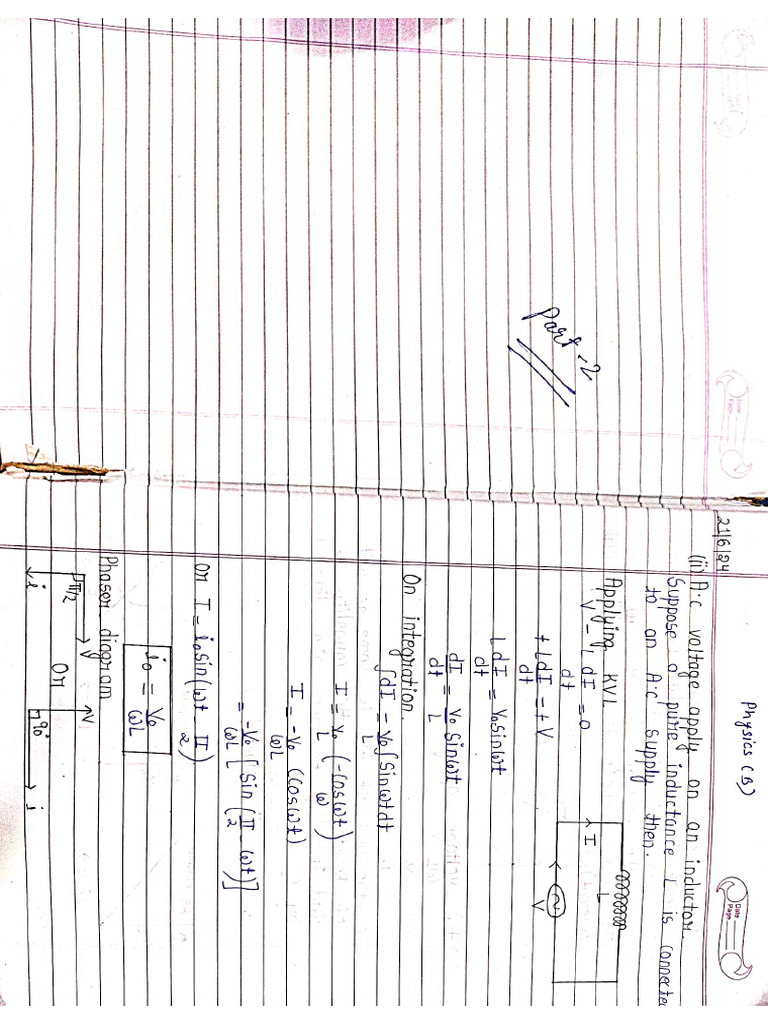 Part-2
Physics (B)
21/6/24
Date
Page
(ii) A.c voltage apply on an inductor.
Suppose a pure inductance L is connected
to an A.c supply then.
Applying KVL
V - L dI/dt = 0
+ L dI/dt = + V
L dI/dt = V₀ Sinωt
dI/dt = V₀/L Sinωt
On integration.
∫dI = V₀/L ∫Sinωt dt
I = V₀/L (-Cosωt/ω)
I = -V₀/ωL (Cosωt)
= -V₀/ωL [Sin(π/2 - ωt)]
or I = i₀ sin(ωt - π/2)
i₀ = V₀/ωL
Phaser diagram
π/2 V i
Or
V 90° i
L
I
V